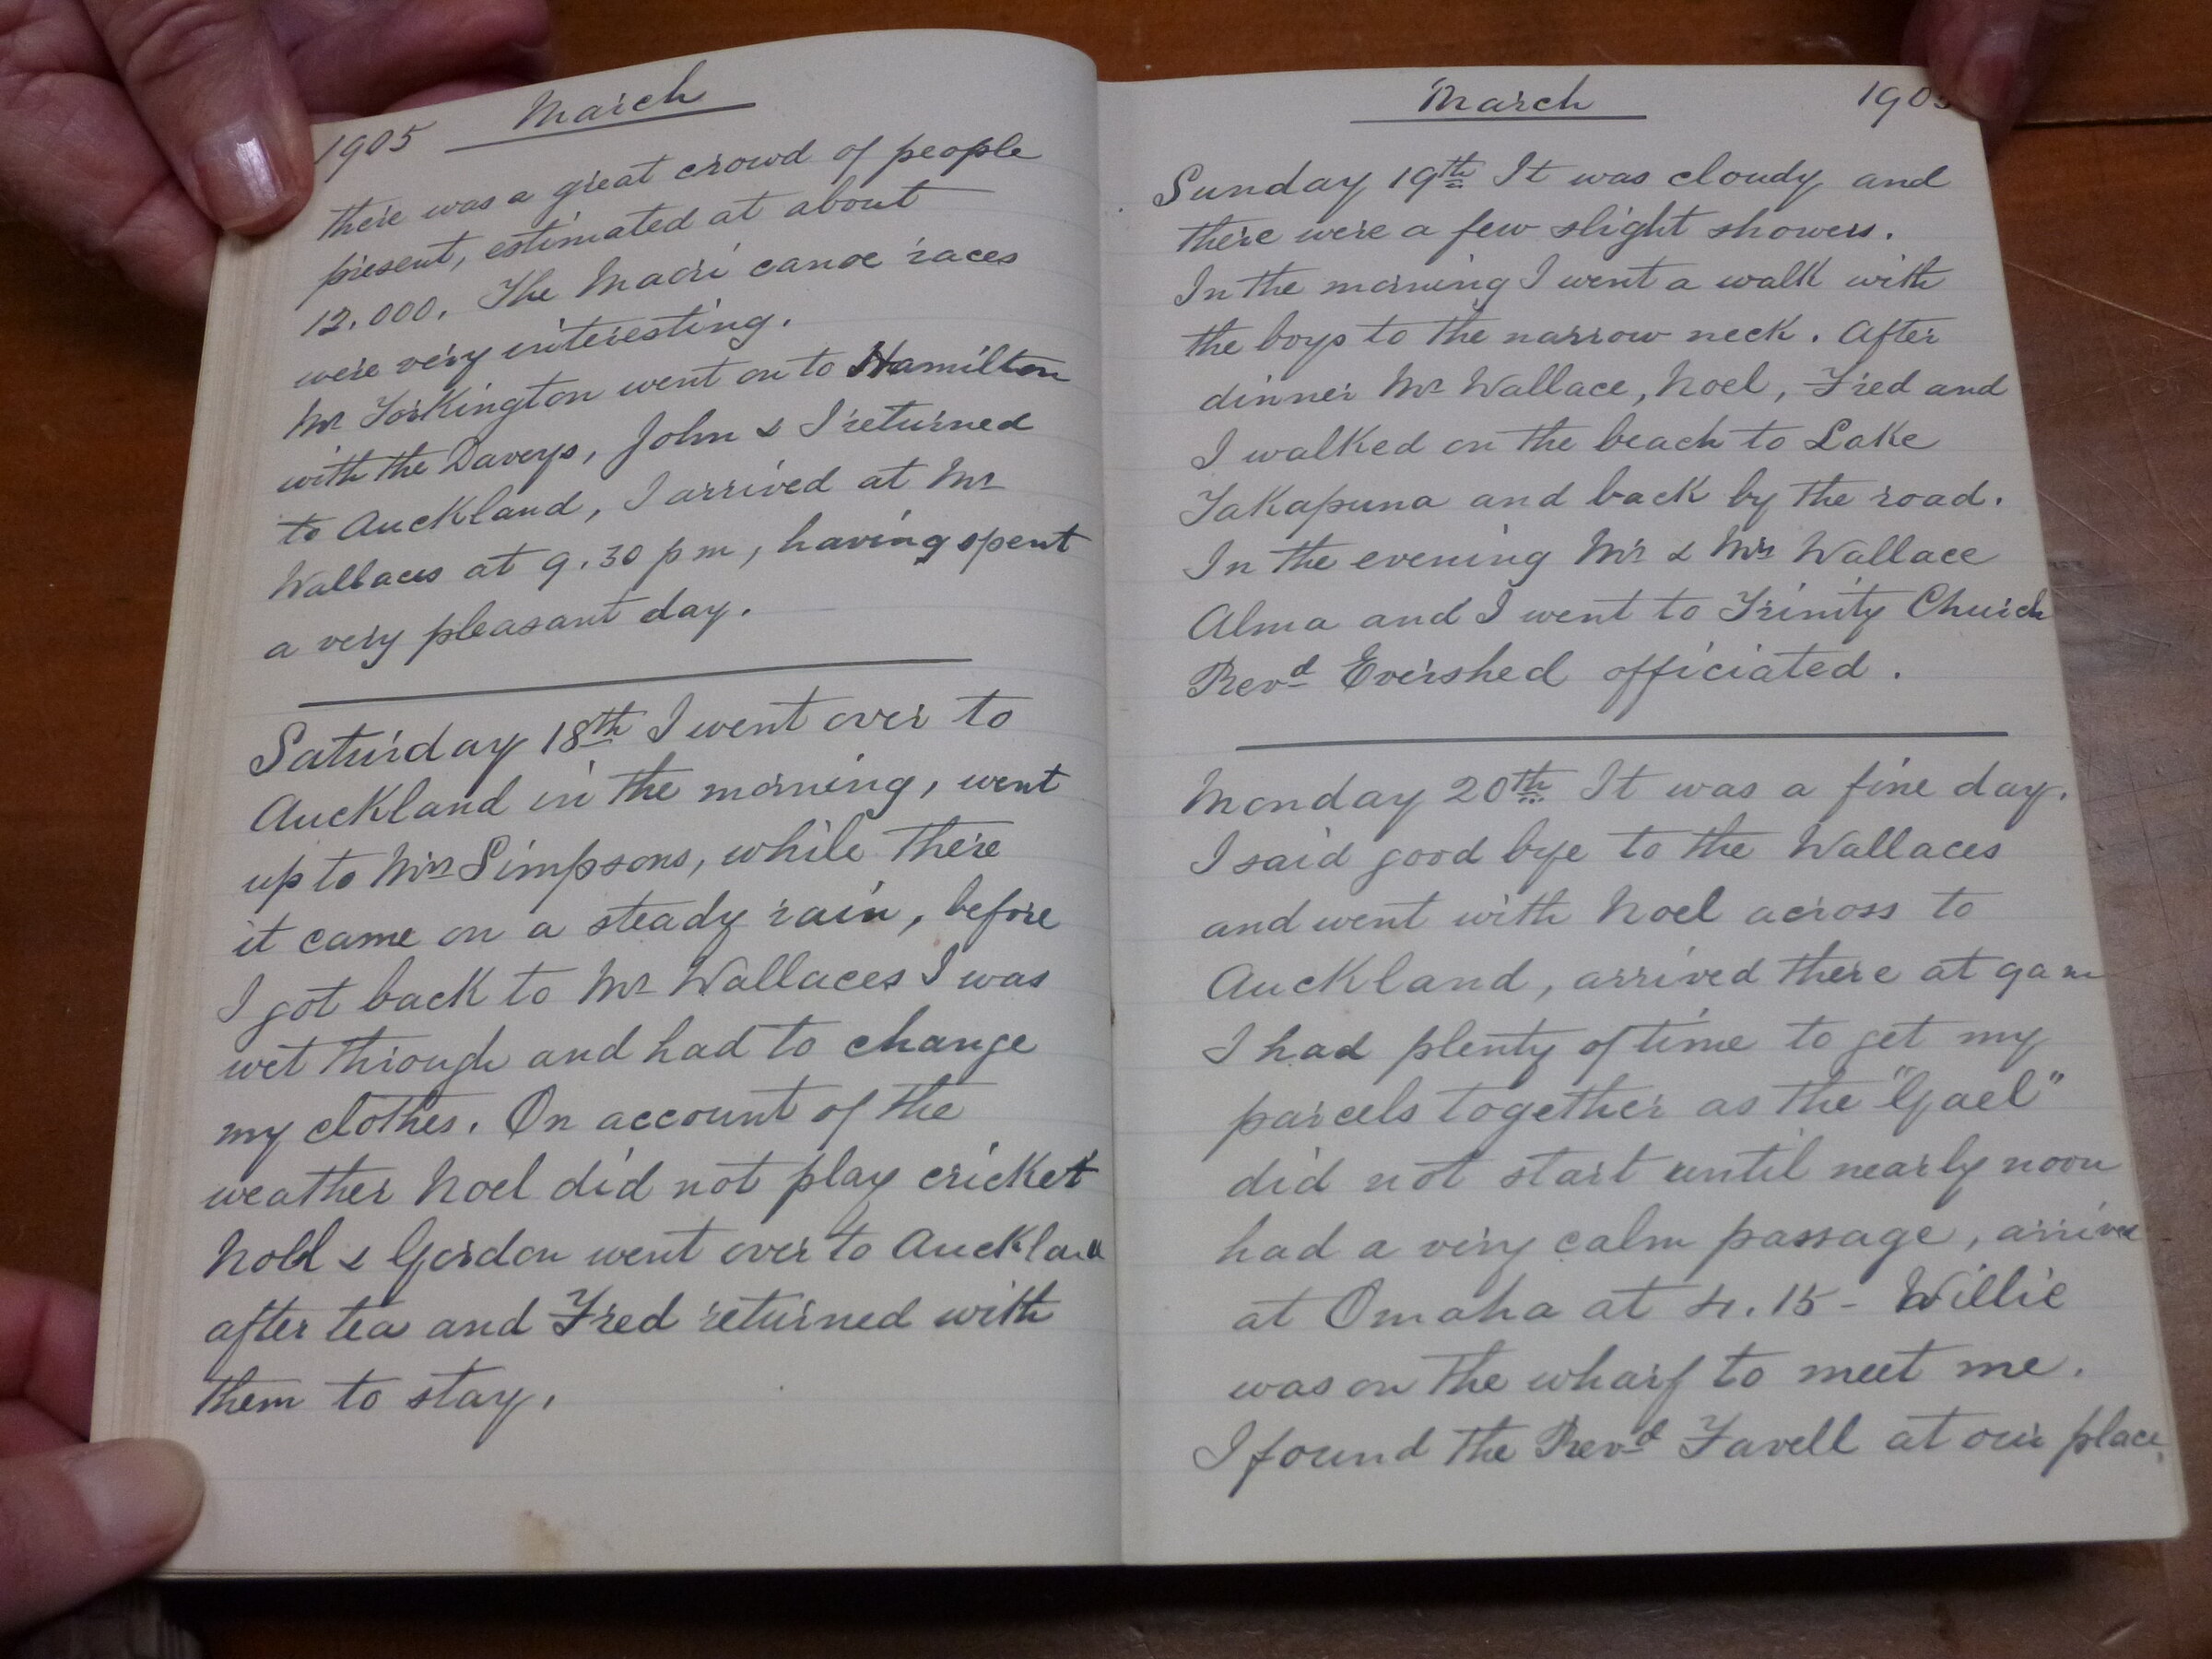 1905 March
there was a great crowd of people
present, estimated at about
12.000. The Maori canoe races
were very interesting.
Mr Torkington went on to Hamilton
with the Daveys, John & I returned
to Auckland, I arrived at Mr
Wallaces at 9.30 pm, having spent
a very pleasant day.
Saturday 18th I went over to
Auckland in the morning, went
up to Mrs Simpsons, while there
it came on a steady rain, before
I got back to Mr Wallaces I was
wet through and had to change
my clothes. On account of the
weather Noel did not play cricket
& Gordon went over to
after tea and Fred returned with
them to stay.
March
Sunday 19th It was cloudy and
there were a few slight showers.
In the morning I went a walk with
the boys to the narrow neck. After
dinner Mr Wallace, Noel, Fred and
I walked on the beach to Lake
Takapuna and back by the road.
In the evening Mr & Mrs Wallace
Alma and I went to Trinity Church
Revd Evershed officiated.
Monday 20th It was a fine day.
I said good bye to the Wallaces
and went with Noel across to
Auckland, arrived there at 9 am
I had plenty of time to get my
parcels together as the "Gael"
did not start until nearly noon
had a very calm passage,
at Omaha at 4.15 - Willie
was on the wharf to meet me.
I found the Revd Favell at our place.